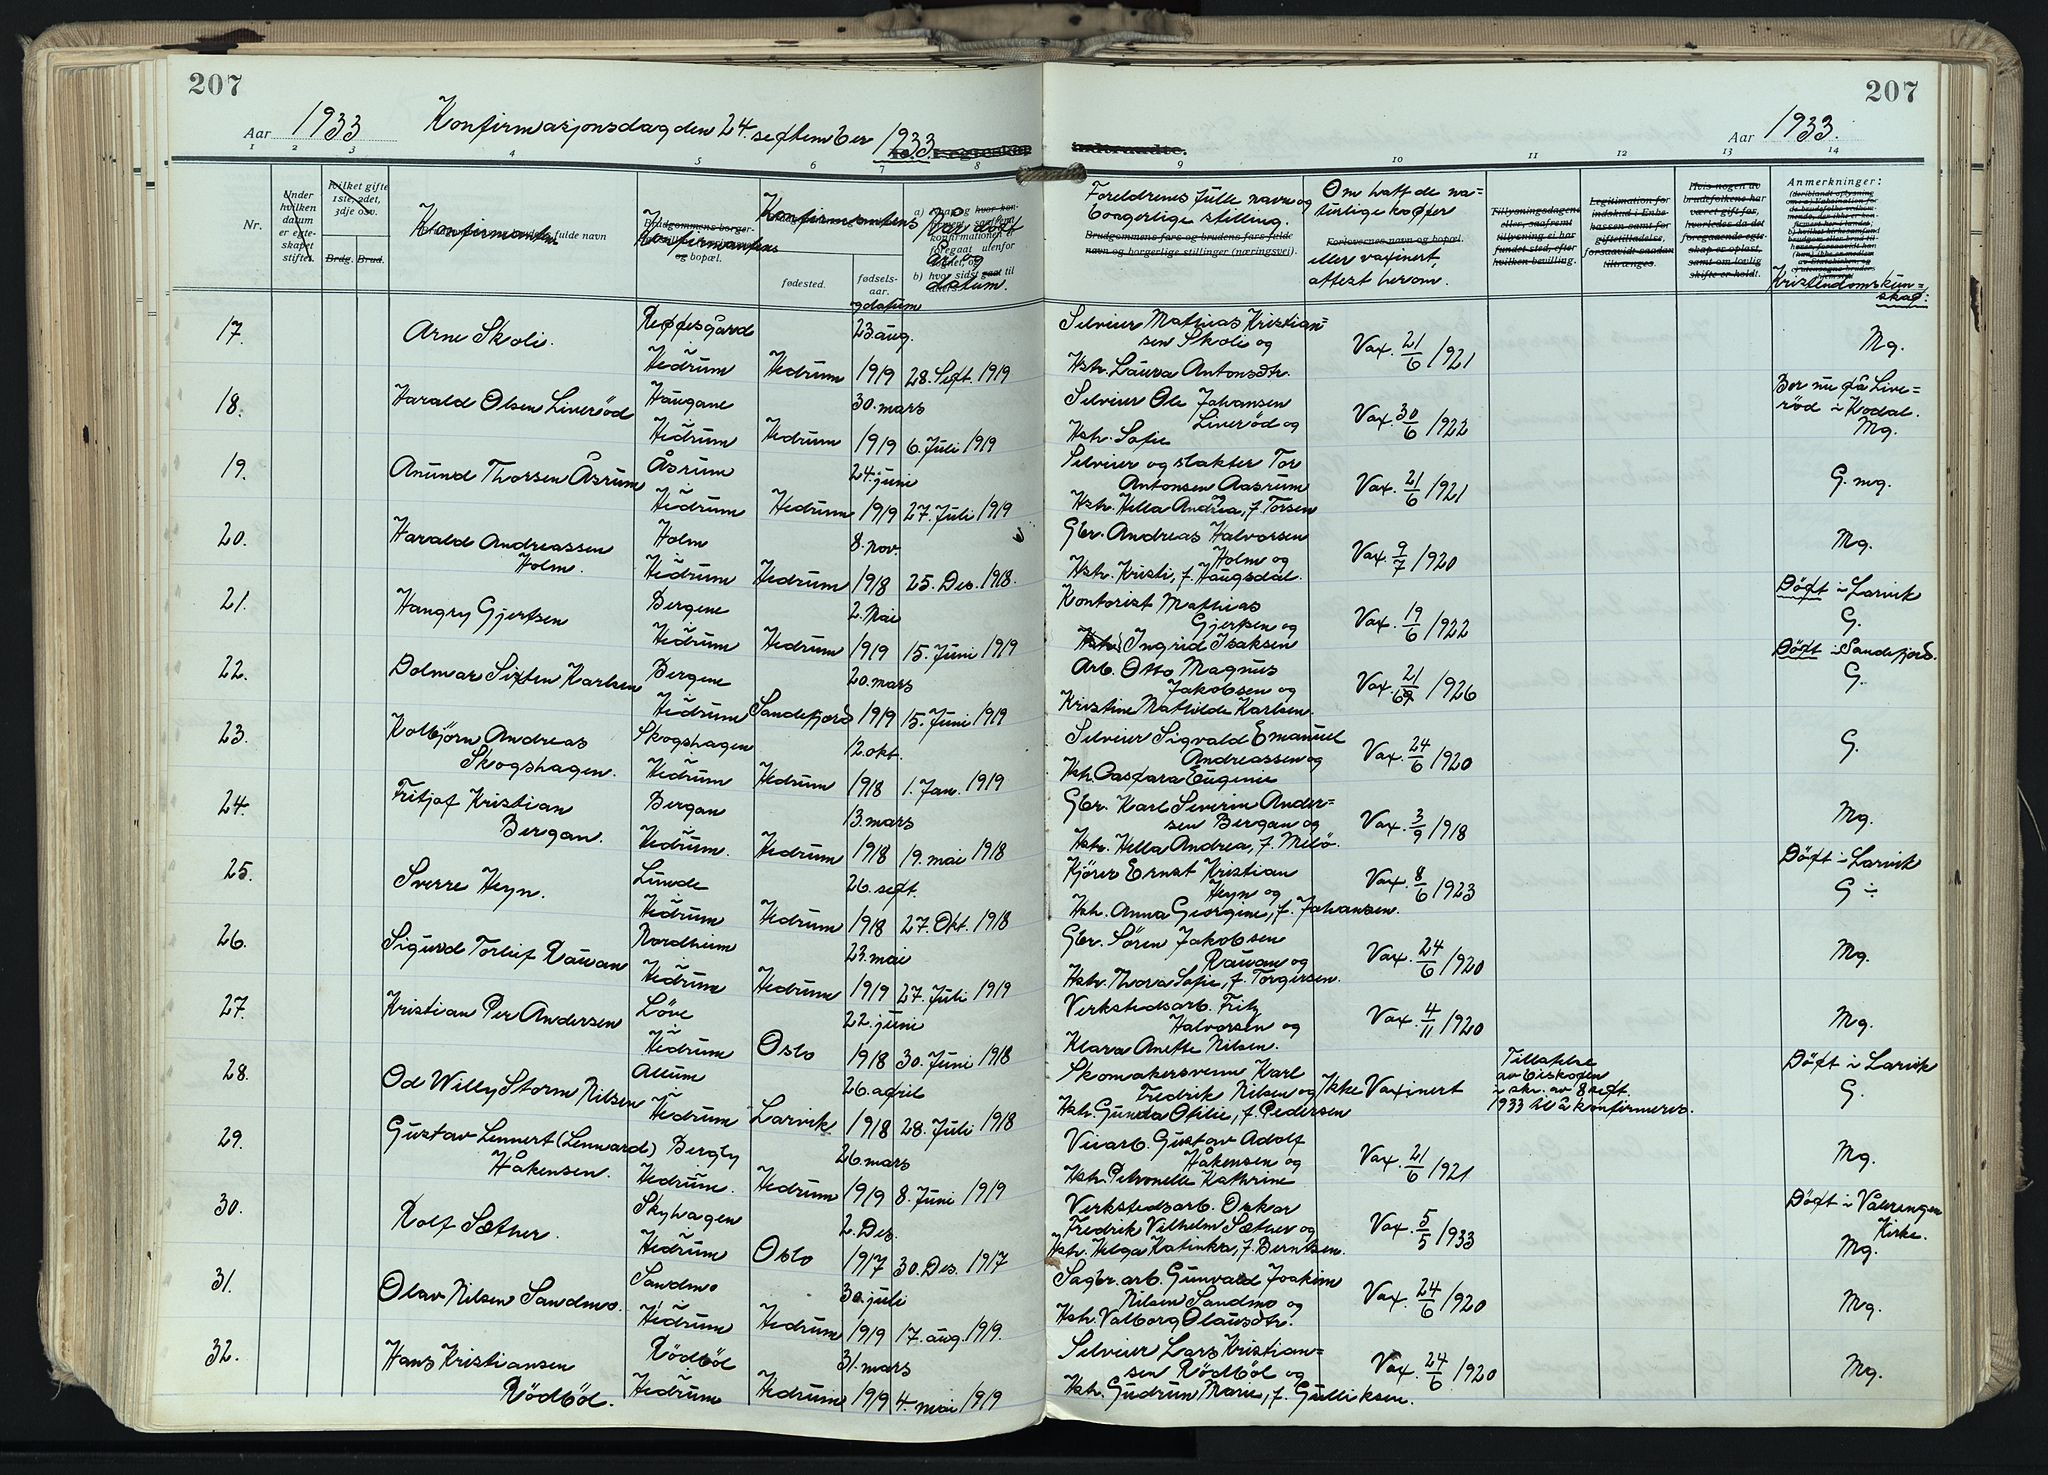 207
207
Aar 1933 Konfirmasjonsdag den 24. september 1933
Aar 1933.
1 2 3 4 5 6 7 8 9 10 11 12 13 14
Nr.
Under hvilken datum er egteskapet stiftet.
Hvilket gifte 1ste, 2det, 3dje osv.
Brdg. Brud.
Konfirmanten fulde navn
Konfirmantens og bopæl.
Konfirmantens
fødested.
fødselsaar. og datum
Når døpt
år og datum.
Foreldrenes fulle navn og borgerlige stilling.
Brudgommens fars og brudens fars fulde navn og borgerlige stillinger (næringsvei).
Om hatt de naturlige kopper
Forlovernes navn og bopæl.
eller vaxinert, attest herom.
Tillysningsdagene eller, saafremt tillysning ei har fundet sted, efter hvilken bevilling.
Legitimation for indskud i Enkekassen samt for giftetilladelse, forsaavidt saadan tiltrænges.
Hvis nogen av brudefolkene har været gift før, hvorledes da det foregaaende egteskap er opløst, samt om lovlig skifte er holdt.
Anmerkninger:
Kristendomskunskap:
17. Arne Skoli. Reppesgård Hedrum Hedrum 23 aug. 1919 28. Sept. 1919
Selveier Mathias Kristiansen Skoli og
Hstr. Laura Antonsdtr. Vax. 21/6 1921 Mg.
18. Harald Olsen Liverød Haugane Hedrum Hedrum 30. mars 1919 6. Juli 1919
Selveier Ole Johansen
Liverød og
Hstr. Sofie Vax. 30/6 1922 Bor nu på Liverød i Kodal. Mg.
19. Anund Thorsen Åsrum Åsrum Hedrum Hedrum 24. juni 1919 27. Juli 1919
Selveier og slakter Tor
Antonsen Aasrum
Hstr. Hella Andrea, f. Torsen Vax. 21/6 1921 G. mg.
20. Harald Andreassen Holm. Holm Hedrum Hedrum 8. nov. 1918 25. Des. 1918.
Gbr. Andreas Halvorsen
Holm og
Hstr. Kristi, f. Haugsdal. Vax. 9/7 1920 Mg.
21. Hangry Gjertsen Bergene Hedrum Hedrum 2. Mai 1919 15. Juni 1919
Kontorist Mathias
Gjertsen og
Hstr. Ingrid Isaksen Vax. 19/6 1922 Døpt i Larvik G.
22. Dolmar Sixten Karlsen Bergene Hedrum Sandefjord 20. mars 1919 15. Juni 1919
Arb. Otto Magnus
Jakobsen og
Kristine Mathilde Karlsen. Vax. 21/6 1926 Døpt i Sandefjord. G.
23. Kolbjörn Andreas Skogshagen. Skogshagen Hedrum Hedrum 12. okt. 1918 1. Jan. 1919
Selveier Sigvald Emanuel
Andreassen og
Hstr. Caspara Eugenie Vax. 24/6 1920 G.
24. Fritjof Kristian Bergan. Bergan Hedrum. Hedrum 13. mars 1918 19. mai 1918
Gbr. Karl Severin Andersen Bergan og
Hstr. Hella Andrea, f. Melö. Vax. 3/9 1918 Mg.
25. Sverre Heyn. Lunde Hedrum Hedrum 26. sept. 1918 27. Okt. 1918
Kjörer Ernst Kristian
Heyn og
Hstr. Anna Georgine, f. Johansen. Vax. 8/6 1923 Döpt i Larvik G ÷
26. Sigurd Torleif Rauan Nordheim Hedrum Hedrum 23. mai 1919 27. Juli 1919
Gbr. Sören Jakobsen
Rauan og
Hstr. Thora Sofie, f. Torgersen. Vax. 24/6 1920 Mg.
27. Kristian Per Andersen Löve Hedrum Oslo 22. juni 1918 30. Juni 1918
Verkstedsarb. Fritz
Halvorsen og
Klara Anette Nilsen. Vax. 4/11 1920 Mg.
28. Od Willy Storm Nilsen Allum Hedrum Larvik 26. april 1918 28. Juli 1918
Skomakersvenn Karl
Fredrik Nilsen og
Hstr. Gunda Otilie, f. Pedersen Ikke Vaxinert
Tillatelse av biskopen i skr. av 8 sept. 1933 til å konfirmeres. Döpt i Larvik G.
29. Gustav Lennert (Lennard) Håkensen. Bergby Hedrum. Hedrum 26. mars 1919 8. Juni 1919
Veiarb. Gustav Adolf
Håkensen og
Hstr. Petronelle Kathrine Vax. 21/6 1921 Mg.
30. Rolf Sæther. Skyhagen Hedrum Oslo 2. Des. 1917 30. Des. 1917
Verkstedsarb. Oskar
Fredrik Vilhelm Sæther og
Hstr. Helga Katinka, f. Berntsen. Vax. 5/5 1933 Döpt i Vålerengen Kirke. Mg.
31. Olav Nilsen Sandmo. Sandmo Hedrum Hedrum 30. juli 1919 17. aug. 1919.
Sagbr. arb. Gunvald Joakim
Nilsen Sandmo og
Hstr. Valborg Olausdtr. Vax. 24/6 1920 Mg.
32. Hans Kristiansen Rödböl. Rödböl Hedrum Hedrum 31. mars 1919 4. mai 1919
Selveier Lars Kristiansen Rödböl og
Hstr. Gudrun Marie, f. Gulliksen. Vax. 24/6 1920 Mg.